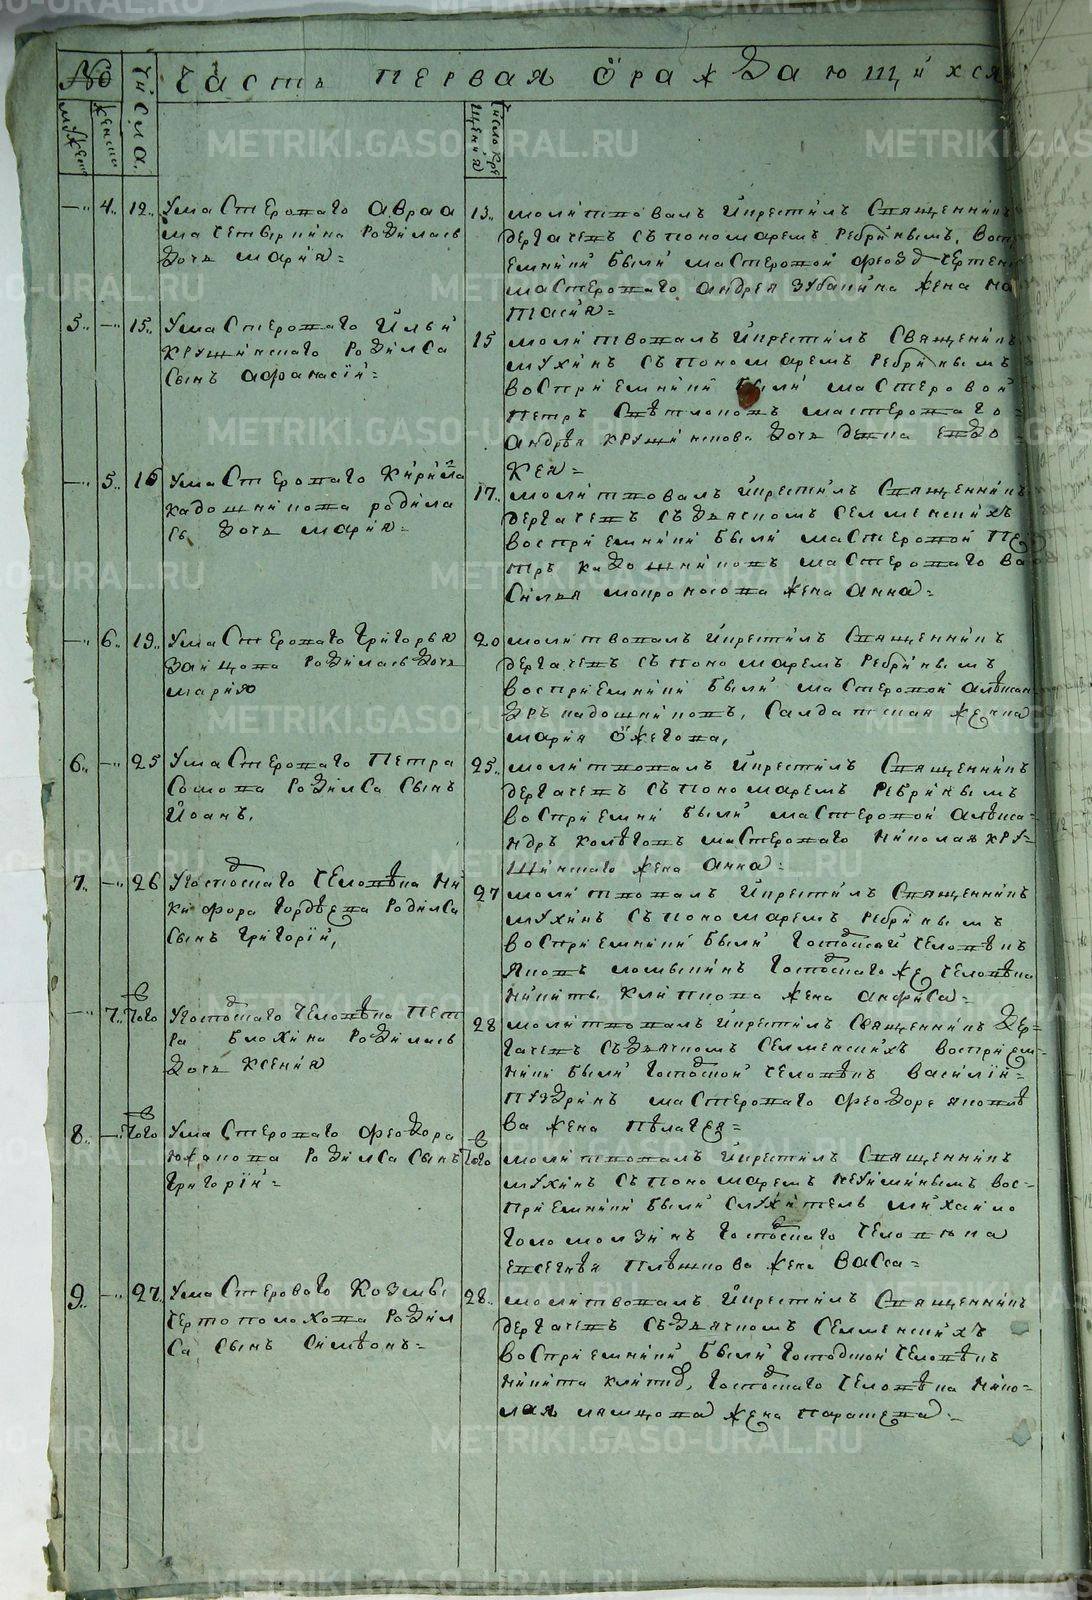 №
Числа
Часть первая ѻраждающихся
мужеск
женски
Число кре
щения
4. 12. У мастероваго Авраа
ма Четверкина родилась
дочь Мария
13. молитвовалъ и крестилъ Священникъ
Дергачевъ съ пономаремъ Ребринымъ. Воспр
емники были мастеровой
мастероваго Андрея Зубакина жена На
тасия
5. 15. У мастероваго Ильи
Крушинскаго родилса
Сынъ Афанасий
15 молитвовалъ и крестилъ Священникъ
Мухинъ съ пономаремъ Ребринымъ
воспри емники были мастеровой
Петръ Светлаковъ мастероваго
Андрея Крушинскова дочь девка Евдо
кея
5. 16 У мастероваго Кирила
Кадошникова родила
сь дочь Мария
17. молитвовалъ и крестилъ Священникъ
Дергачевъ съ дьячкомъ Селменскихъ
воспри емники были мастеровой Пе
тръ Кадошниковъ мастероваго Ва
Силья Мокроносова жена Анна
6. 19. У мастероваго Григорья
Зайцова родилась дочь
Мария
20 молитвовалъ и крестилъ Священникъ
Дергачевъ съ пономаремъ Ребринымъ
восприемники были мастеровой Алѣксан
дръ Кадошниковъ, Салдатская женка
Мария Ѻжегова,
6. 25 У мастероваго Петра
Сомова родилса Сынъ
Иоанъ.
25. молитвовалъ и крестилъ Священникъ
Дергачевъ съ пономаремъ Ребринымъ
воспри емники были мастеровой Алѣкса
ндръ Колѣговъ мастероваго Николая Кру
шинскаго жена Анна
7. 26 У господскаго человѣка Ни
кифора Гордѣева родилса
Сынъ Григорий,
27 молитвовалъ и крестилъ Священникъ
Мухинъ съ пономаремъ Ребринымъ
воспри емники были господский человѣкъ
Яковъ господскаго же человѣка
Никиты жена Анфиса
7. того У господскаго человѣка Пет
ра Блохина родилась
дочь Ксения
28 молитвовалъ и крестилъ Священникъ Дер
гачевъ съ дьячкомъ Селменскихъ восприем
ники были господской человѣкъ Василий
Пуздринъ мастероваго Феодора Яковлѣ
ва жена Пѣлагея
8. того У мастероваго Феодора
Южакова родилса Сынъ
Григорий
того молитвовалъ и крестилъ Священникъ
Мухинъ съ пономаремъ Неуйминымъ вос
при емники были служитель Михайло
Голомолзинъ господскаго человѣка
Евсегнѣя Плѣшкова жена Васса
9. 27. У мастероваго Козмы
Чертополохова родил
са Сынъ Симѣонъ
28. молитвовалъ и крестилъ Священникъ
Дергачевъ съ дьячкомъ Селменскихъ
воспри емники были господской человѣкъ
Никита господскаго человѣка Нико
лая Лямцова жена Параскева
METRIKI.GASO-URAL.RU